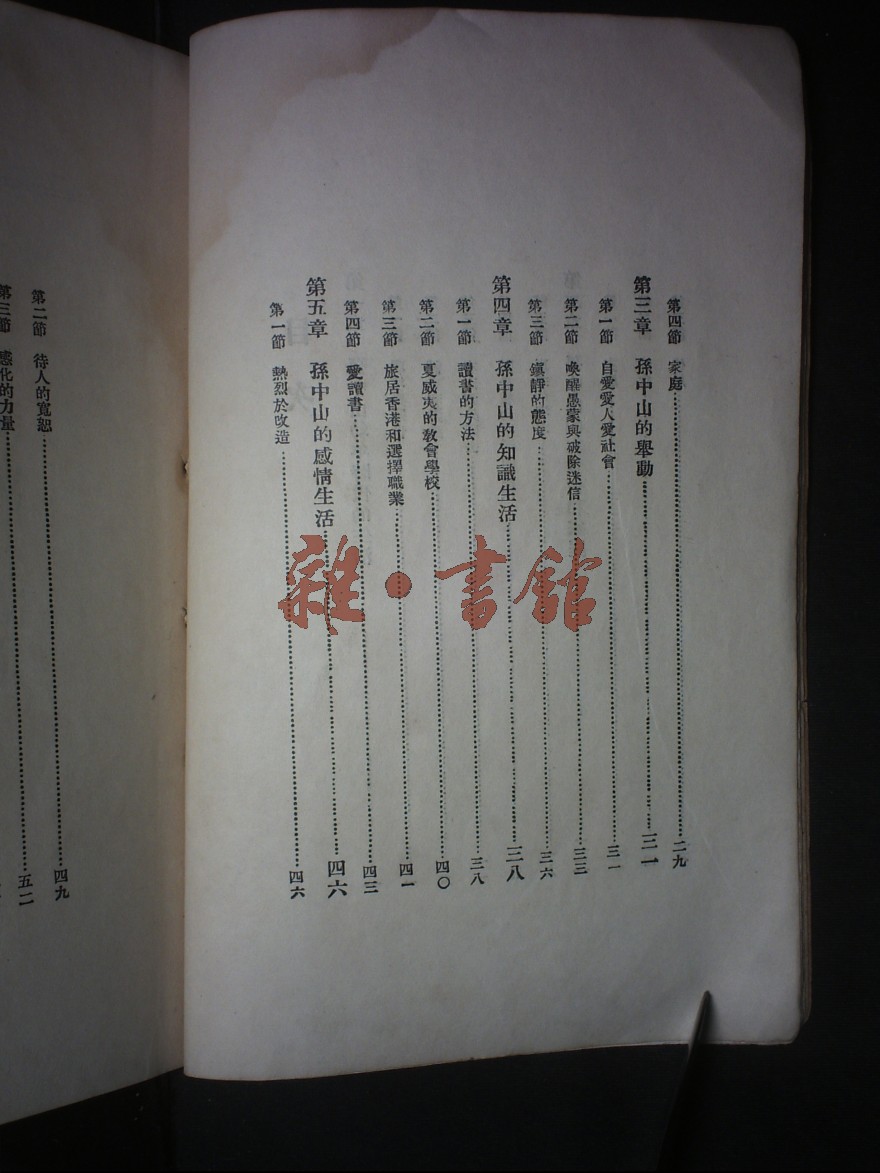 第四節 家庭……二九
第三章 孫中山的舉動……三一
第一節 自愛愛人愛社會……三一
第二節 喚醒愚蒙與破除迷信……三三
第三節 鎮靜的態度……三六
第四章 孫中山的知識生活……三八
第一節 讀書的方法……三八
第二節 夏威夷的敎會學校……四〇
第三節 旅居香港和選擇職業……四一
第四節 愛讀書……四三
第五章 孫中山的感情生活……四六
第一節 熱烈於改造……四六
第二節 待人的寬恕……四九
第三節 感化的力量……五二
雜·書館